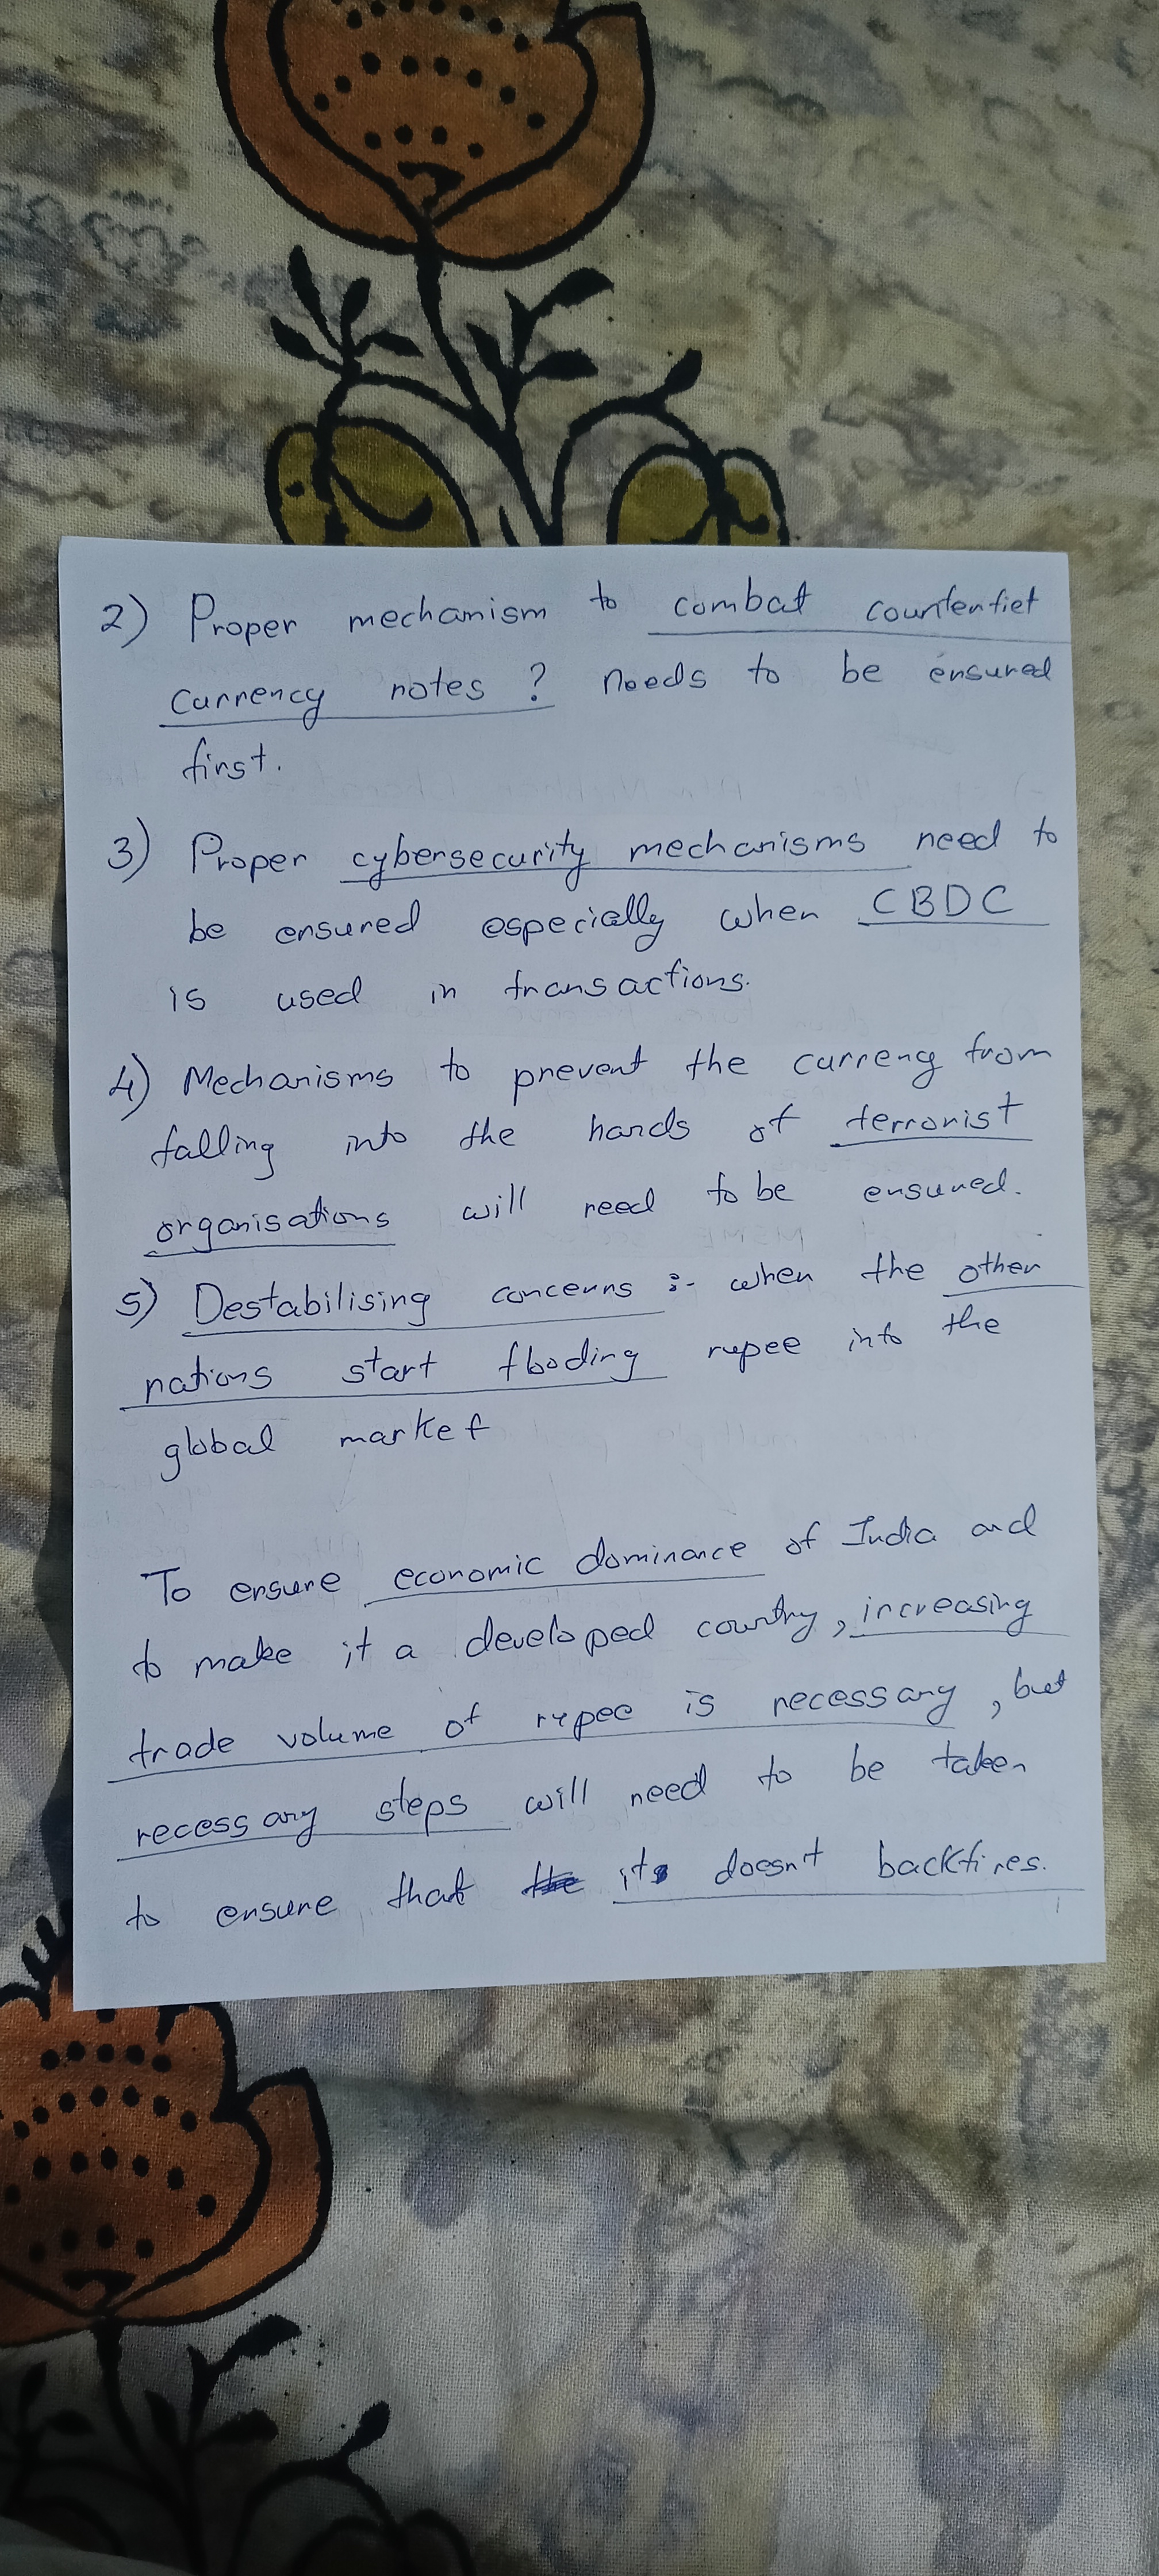 2) Proper mechanism to combat counterfiet
currency notes ? needs to be ensured
first.
3) Proper cybersecurity mechanisms need to
be ensured especially when CBDC
is used in transactions.
4) Mechanisms to prevent the curreny from
falling into the hands of terrorist
organisations will need to be ensured.
5) Destabilising concerns :- when the other
nations start flooding rupee into the
global market
To ensure economic dominance of India and
to make it a developed country, increasing
trade volume of rupee is necessary, but
necessary steps will need to be taken
to ensure that its doesn't backfires.